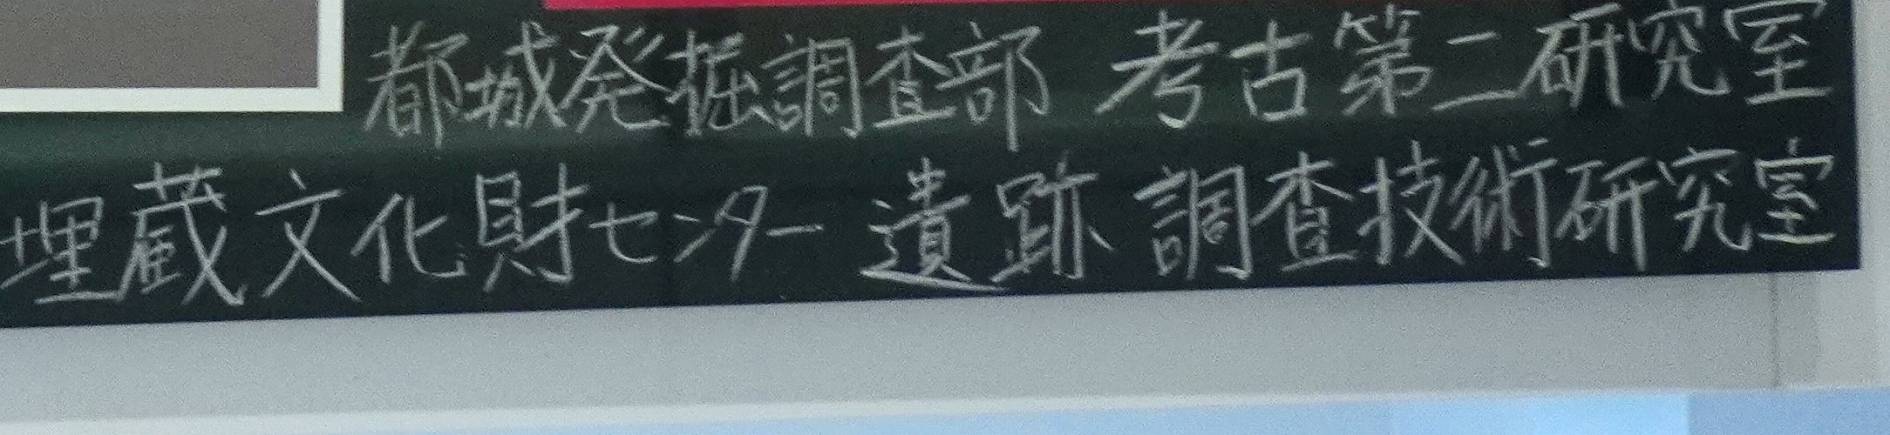 都城発掘調査部 考古第二研究室
埋蔵文化財センター 遺跡 調査技術研究室